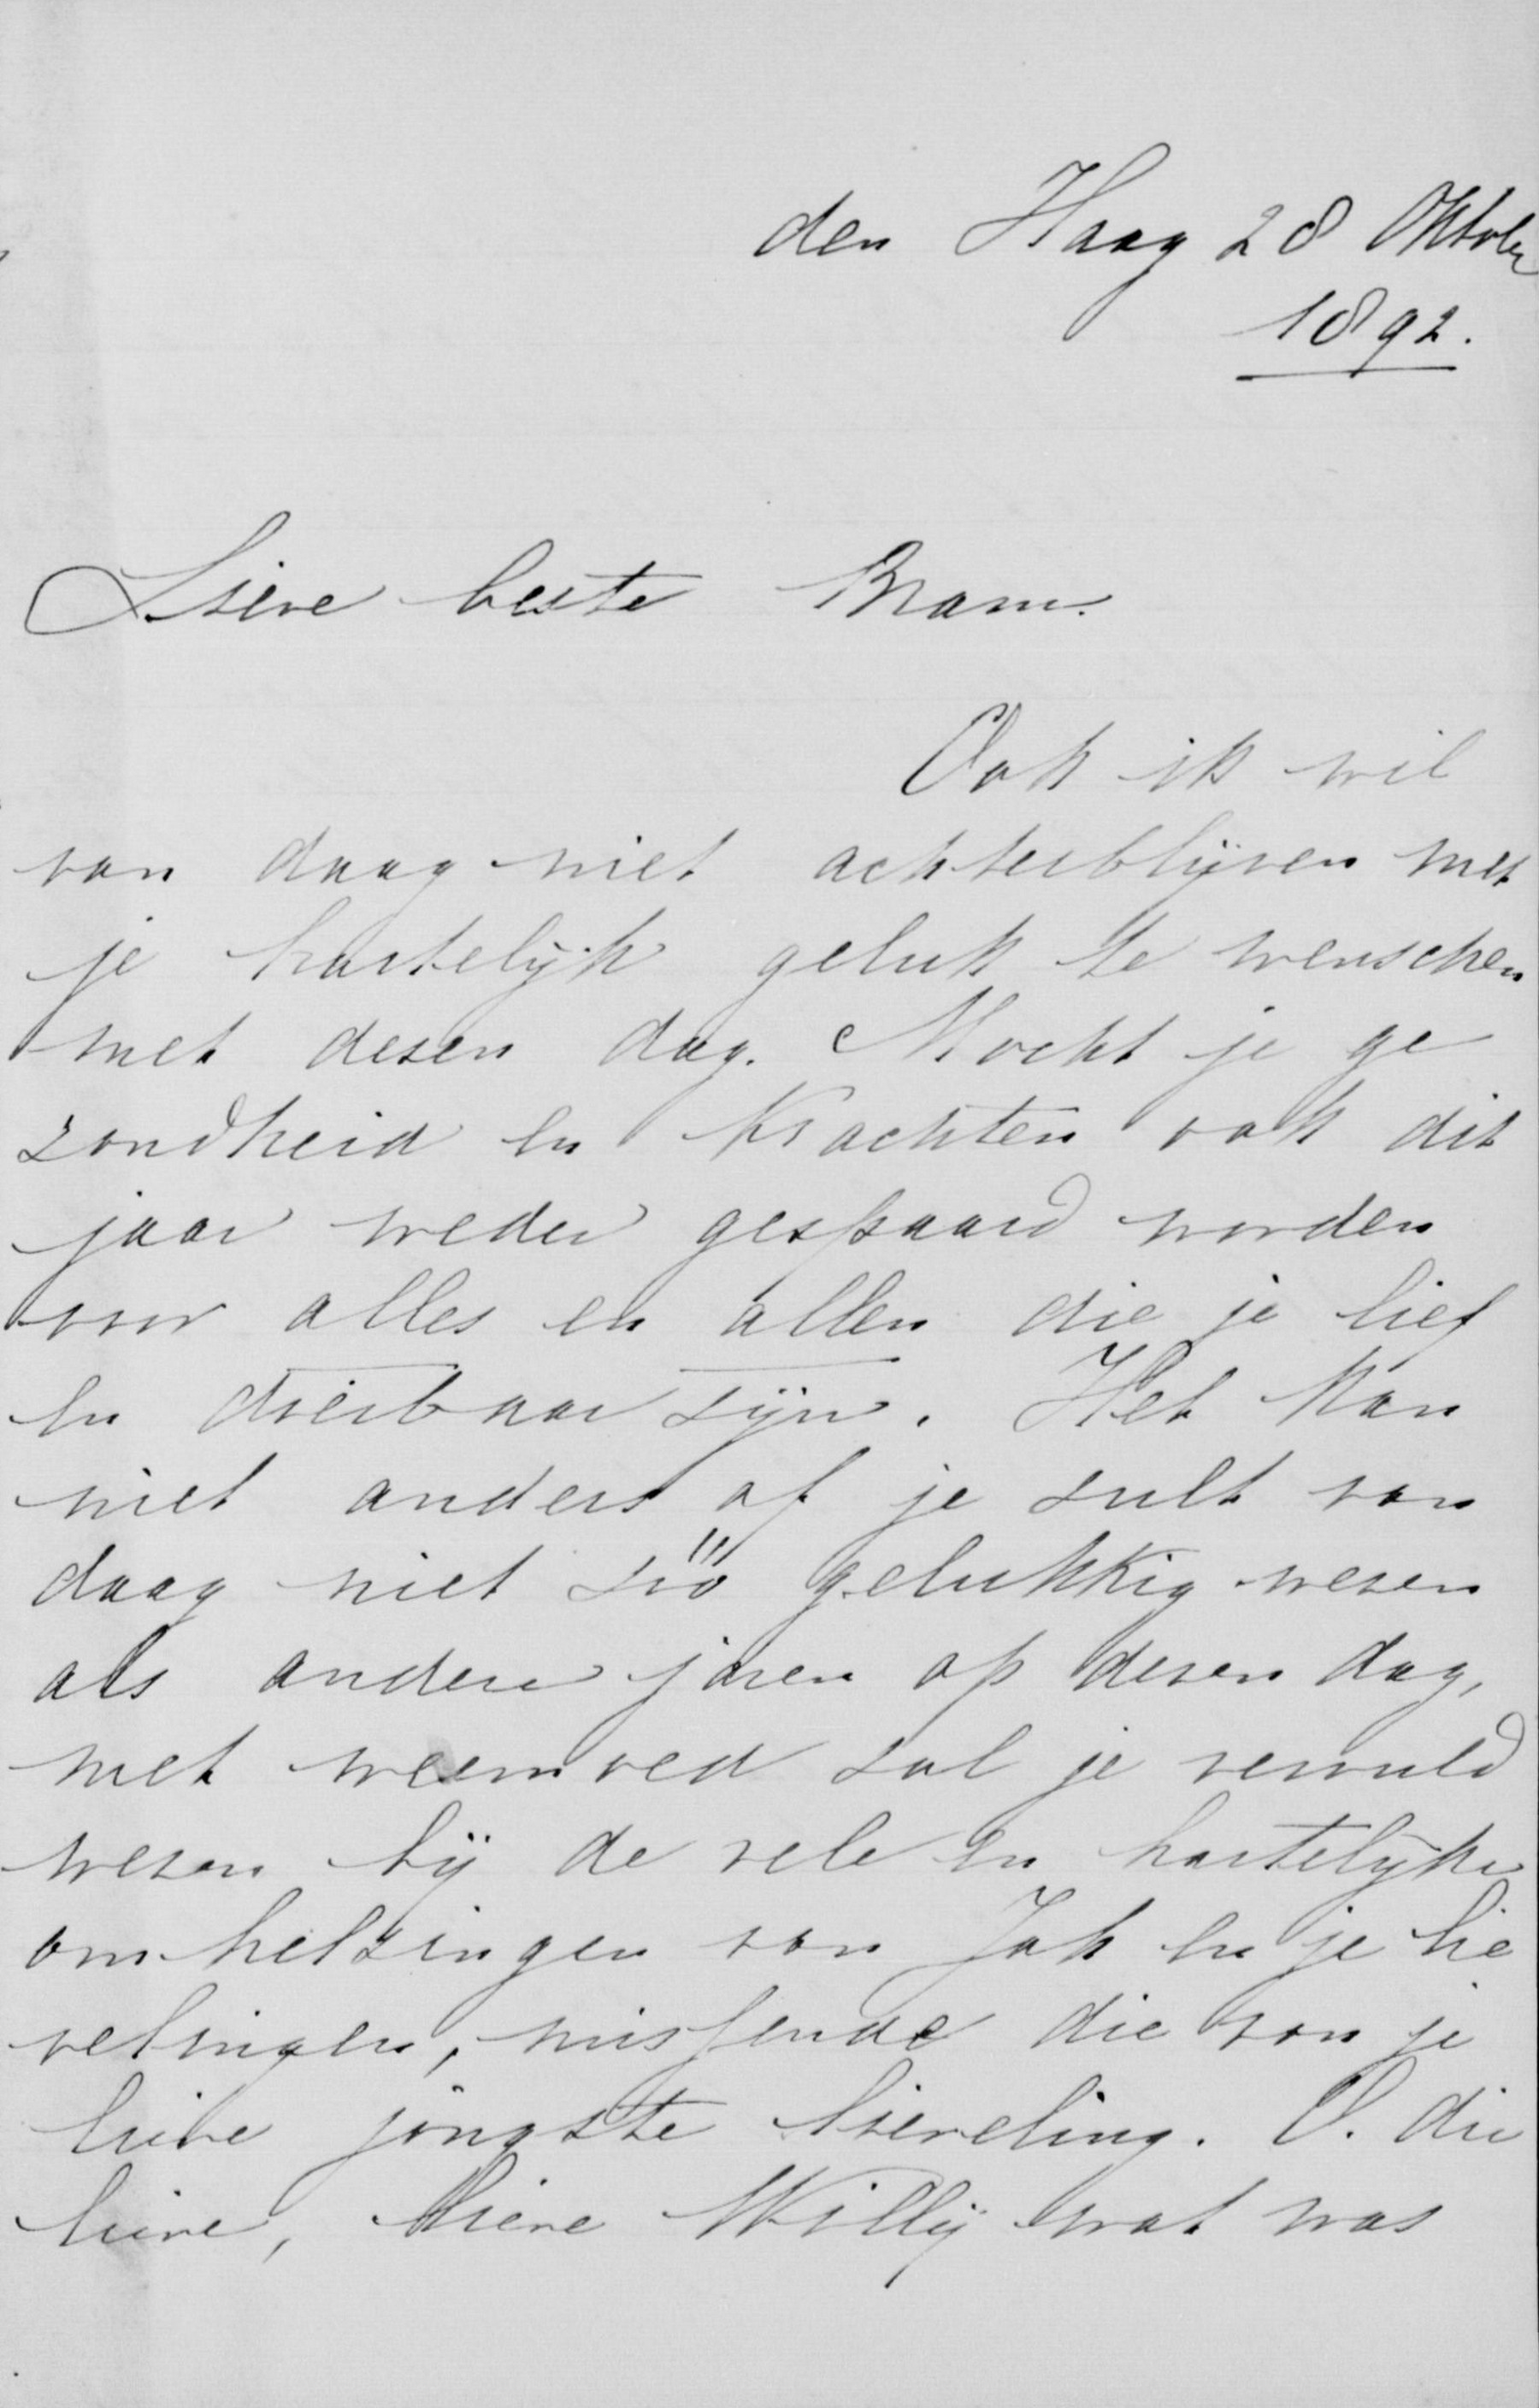 den Haag 28 Oktober
1892.
Lieve beste Bram.
Ook ik wil
van daag niet achterblijven met
je hartelijk geluk te wenschen
met dezen dag. Mocht je ge
zondheid en krachten ook dit
jaar weder gespaard worden
voor alles en allen die je lief
en dierbaar zijn. Het kan
niet anders of je zult van
daag niet zóó gelukkig wezen
als andere jaren op dezen dag,
met weemoed zal je vervuld
wezen bij de vele en hartelijke
omhelzingen van Jak en je lie
velingen, missende die van je
lieve jongste lieveling. O. die
lieve, lieve Willij wat was